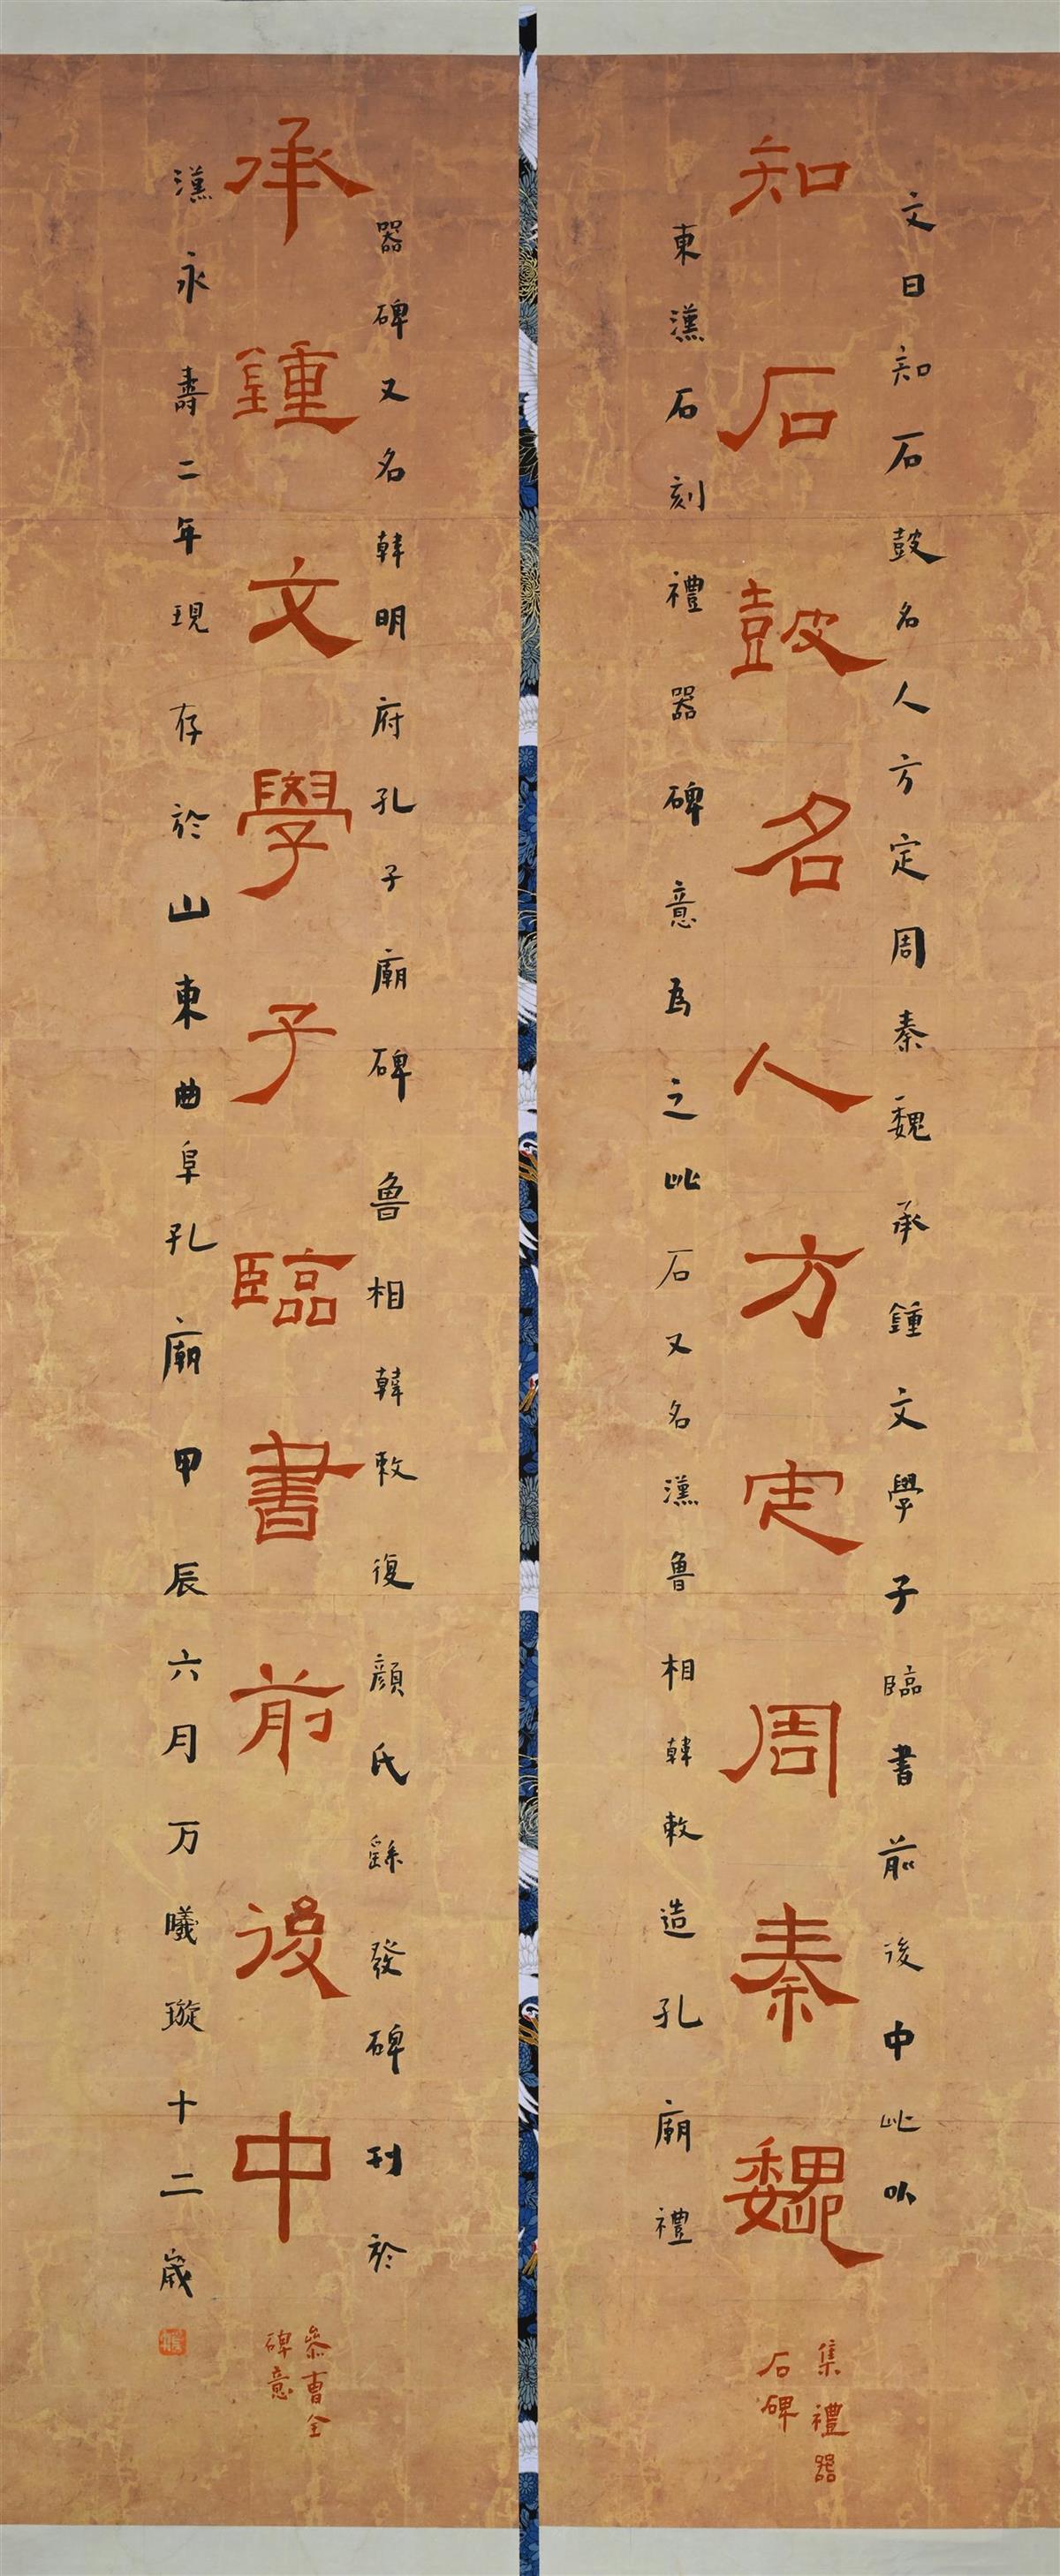 文曰知石皷名人方定周秦魏承鍾文學子臨書前後中此以
知石皷名人方定周秦魏
集禮器
石碑
東漢石刻禮器碑意為之此石又名漢魯相韓敕造孔廟禮
器碑又名韓明府孔子廟碑魯相韓敕復顏氏繇發碑刊於
承鍾文學子臨書前後中
參曹全
碑意
漢永壽二年現存於山東曲阜孔廟甲辰六月万曦璇十二歲